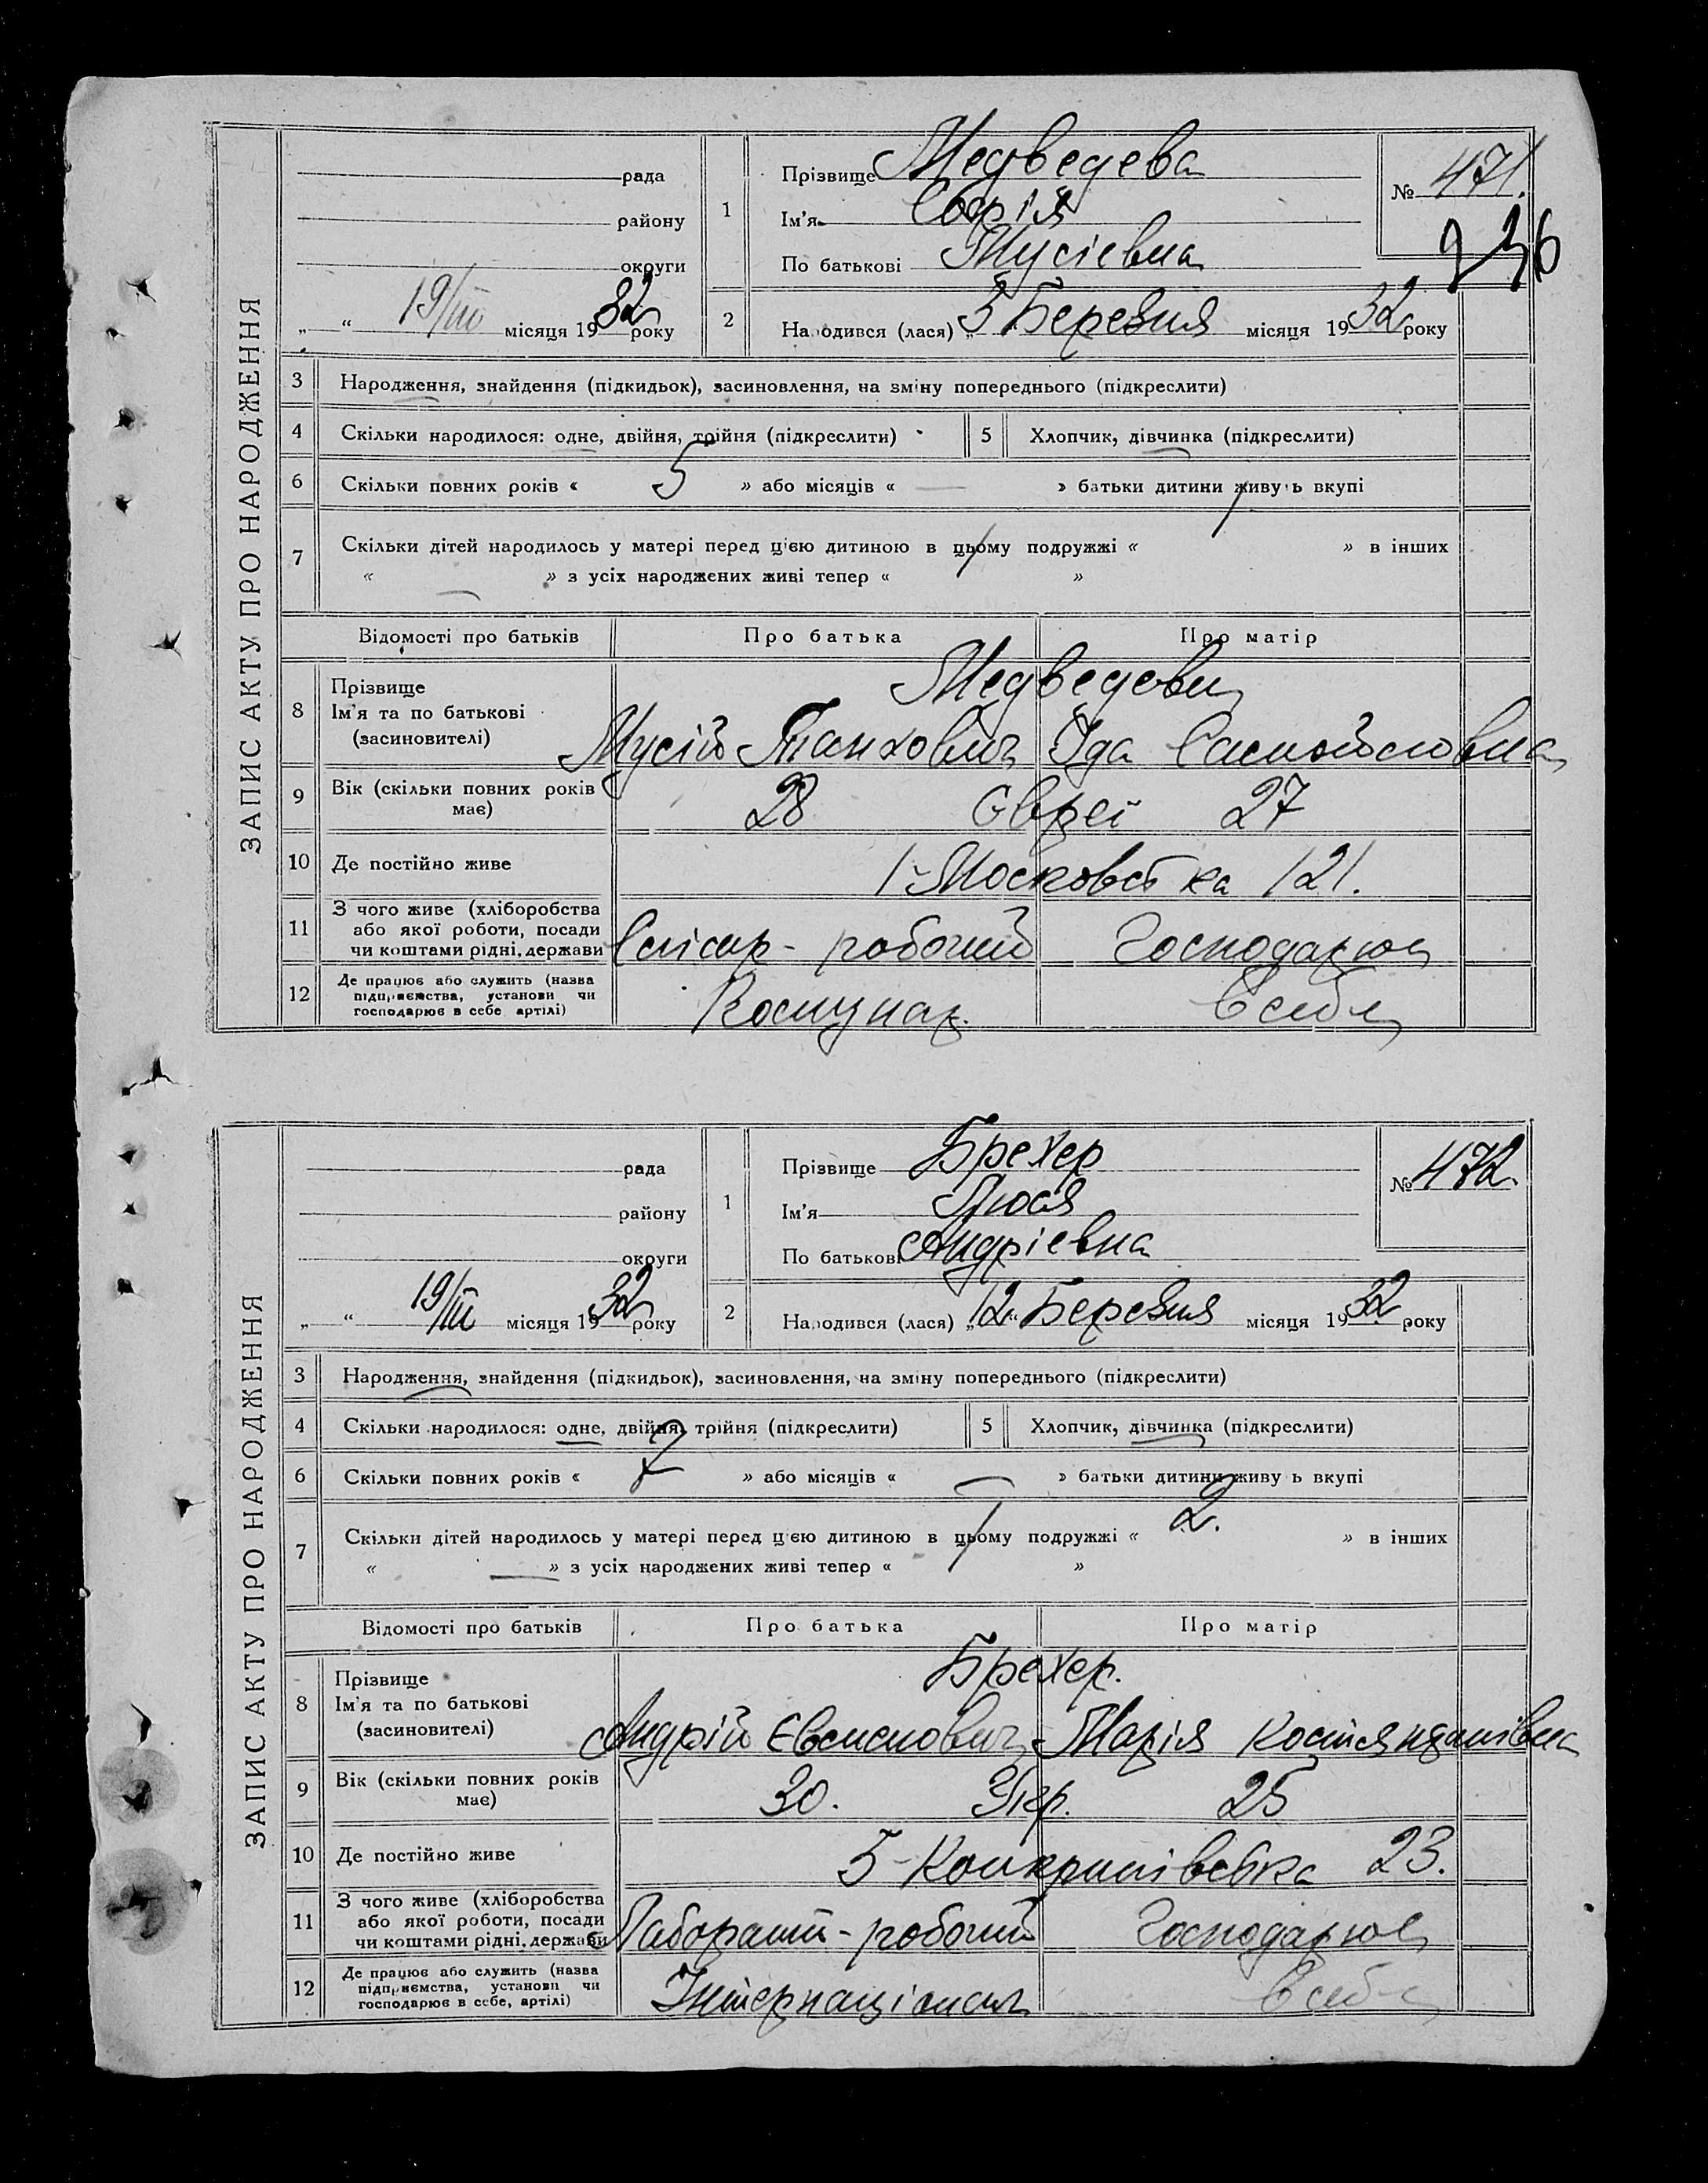 ЗАПИС АКТУ ПРО НАРОДЖЕННЯ
рада
району
округи
„ “ 19/III місяця 1932 року
1
Прізвище Медведева
Ім'я Софія
По батькові Мусіевна
№ 471.
236
2
Народився (лася) „3 Березня місяця 1932 року
3 Народження, знайдення (підкидьок), засиновлення, на зміну попереднього (підкреслити)
4 Скільки народилося: одне, двійня, трійня (підкреслити) 5 Хлопчик, дівчинка (підкреслити)
6 Скільки повних років « 5 » або місяців « — » батьки дитини живуть вкупі
7 Скільки дітей народилось у матері перед цією дитиною в цьому подружжі « 1 » в інших
« — » з усіх народжених живі тепер « 1 »
Відомості про батьків Про батька Про матір
8 Прізвище
Ім'я та по батькові
(засиновителі)
Медведеви
Мусій Танхович Іда Самойловна
9 Вік (скільки повних років має) 28 Євреї 27
10 Де постійно живе 1-Московська 121.
11 З чого живе (хліборобства
або якої роботи, посади
чи коштами рідні, держави
Слісар - робочий Господарює
12 Де працює або служить (назва
підприємства, установи чи
господарює в себе артілі)
Комунар. В себе
ЗАПИС АКТУ ПРО НАРОДЖЕННЯ
рада
району
округи
„ “ 19/III місяця 1932 року
1
Прізвище Брехер
Ім'я Люся
По батькові Андріевна
№ 472.
2
Народився (лася) „12“ Березня місяця 1932 року
3 Народження, знайдення (підкидьок), засиновлення, на зміну попереднього (підкреслити)
4 Скільки народилося: одне, двійня, трійня (підкреслити) 5 Хлопчик, дівчинка (підкреслити)
6 Скільки повних років « 7 » або місяців « — » батьки дитини живуть вкупі
7 Скільки дітей народилось у матері перед цією дитиною в цьому подружжі « 2. » в інших
« — » з усіх народжених живі тепер « 1 »
Відомості про батьків Про батька Про матір
8 Прізвище
Ім'я та по батькові
(засиновителі)
Брехер.
Андрій Марія Костянтинівна
9 Вік (скільки повних років має) 30. 25
10 Де постійно живе 5- 23.
11 З чого живе (хліборобства
або якої роботи, посади
чи коштами рідні, держави
Лаборант - робочий Господарює
12 Де працює або служить (назва
підприємства, установи чи
господарює в себе, артілі)
Інтернаціонал В себе